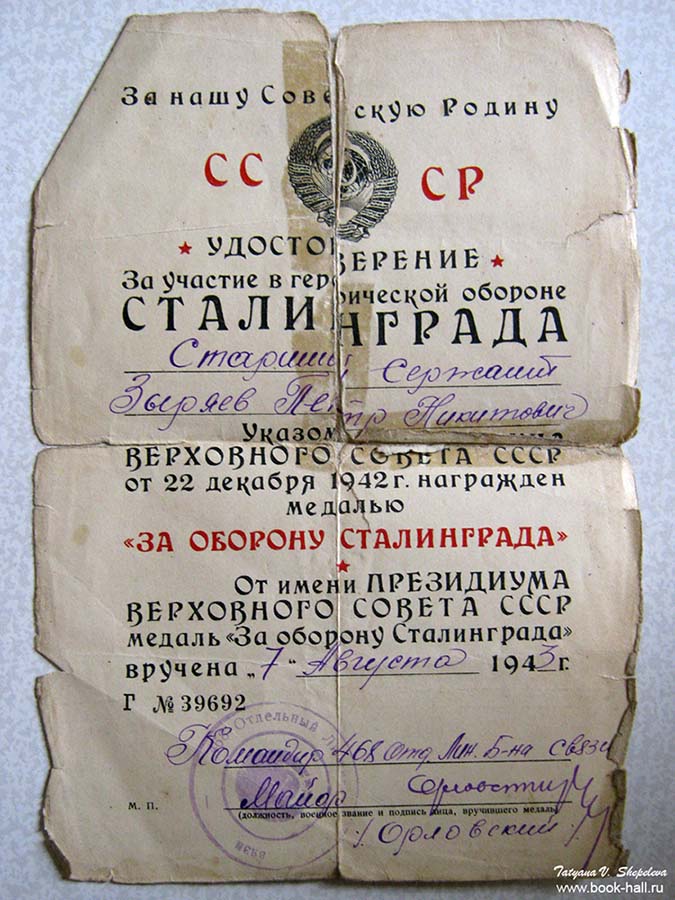 За нашу Советскую Родину
СССР
УДОСТОВЕРЕНИЕ
За участие в героической обороне
СТАЛИНГРАДА
Старший Сержант
Зыряев Петр Никитович
Указом
ВЕРХОВНОГО СОВЕТА СССР
от 22 декабря 1942 г. награжден
медалью
«ЗА ОБОРОНУ СТАЛИНГРАДА»
От имени ПРЕЗИДИУМА
ВЕРХОВНОГО СОВЕТА СССР
медаль «За оборону Сталинграда»
вручена „7" Августа 1943 г.
Г № 39692
Отдельный
Командир 468 Отд. Лин. Б-на связи
Майор
М. П.
(должность, военное звание и подпись лица, вручившего медаль)
/Орловский/
Tatyana V. Shepeleva
www.book-hall.ru